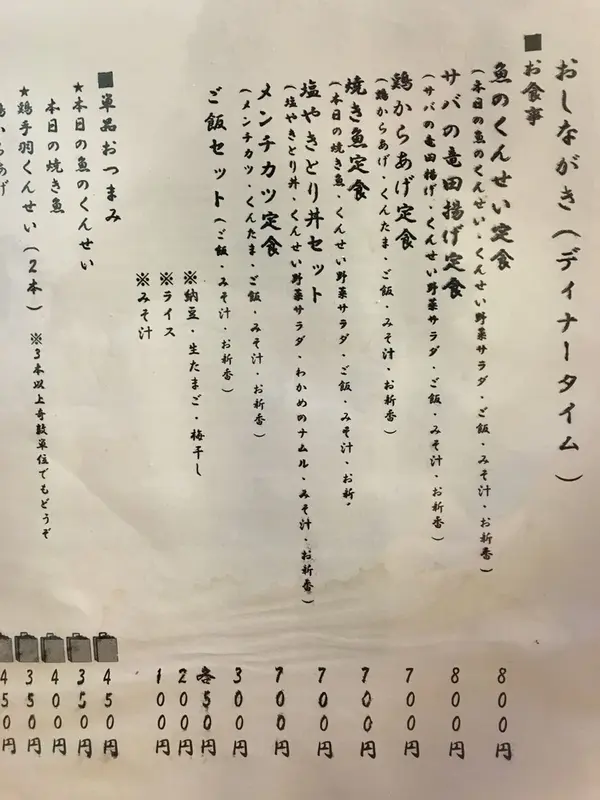 おしながき（ディナータイム）
■お食事
魚のくんせい定食
（本日の魚のくんせい・くんせい野菜サラダ・ご飯・みそ汁・お新香）
800円
サバの竜田揚げ定食
（サバの竜田揚げ・くんせい野菜サラダ・ご飯・みそ汁・お新香）
800円
鶏からあげ定食
（鶏からあげ・くんたま・ご飯・みそ汁・お新香）
700円
焼き魚定食
（本日の焼き魚・くんせい野菜サラダ・ご飯・みそ汁・お新
700円
塩やきとり丼セット
（塩やきとり丼・くんせい野菜サラダ・わかめのナムル・みそ汁・お新香）
700円
メンチカツ定食
（メンチカツ・くんたま・ご飯・みそ汁・お新香）
700円
ご飯セット（ご飯・みそ汁・お新香）
300円
※納豆・生たまご・梅干し
各50円
※ライス
200円
※みそ汁
100円
■単品おつまみ
★本日の魚のくんせい
450円
本日の焼き魚
350円
★鶏手羽くんせい（2本）
※3本以上奇数単位でもどうぞ
400円
350円
450円